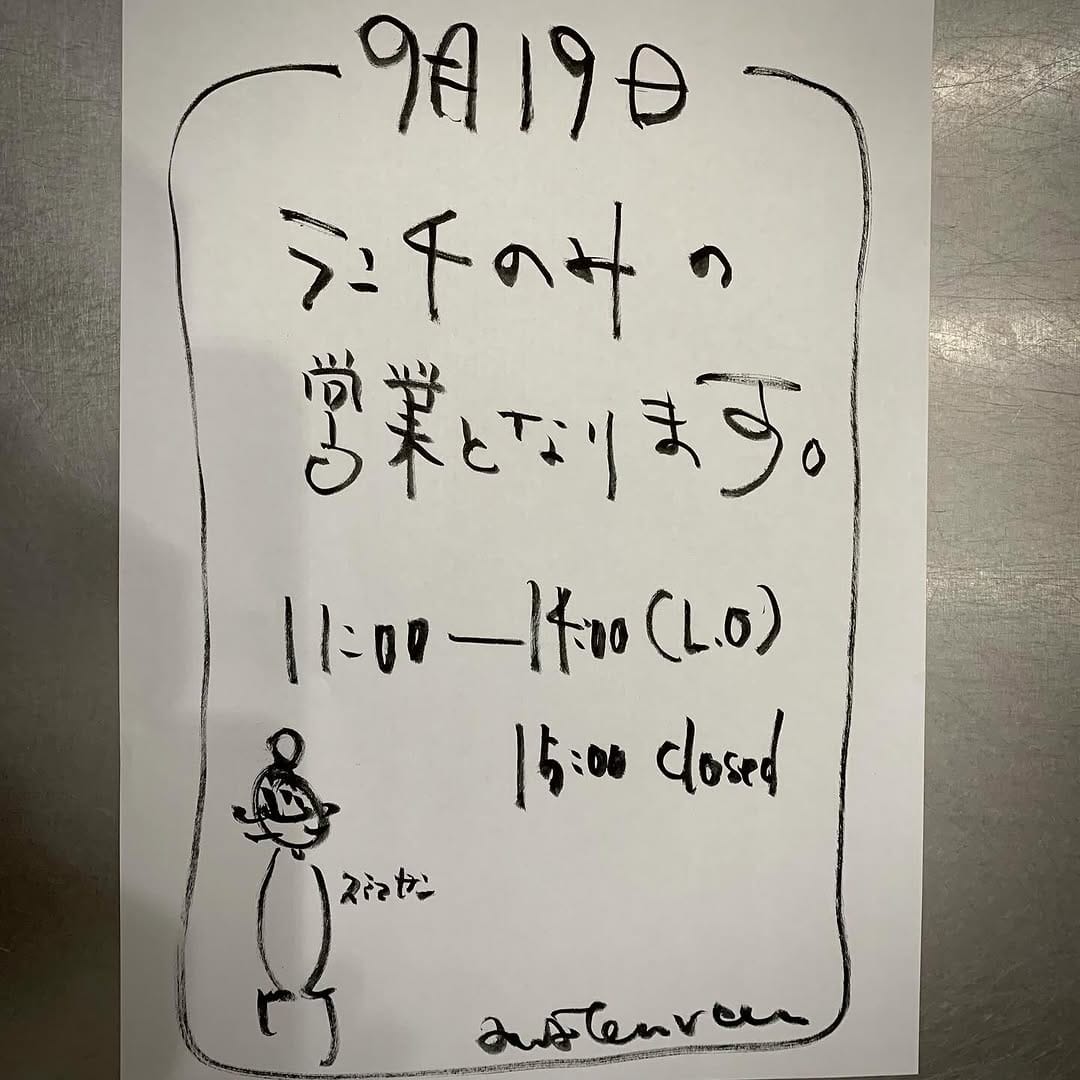 9月19日
ランチのみの
営業となります。
11:00—14:00(L.O)
15:00 closed
スミマセン